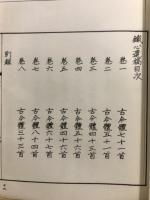 鐵心遺稿目次
卷一 古今體七十一首
卷二 古今體五十一首
卷三 古今體五十一首
卷四 古今體四十六首
卷五 古今體四十六首
卷六 古今體四十七首
卷七 古今體八十四首
卷八 古今體三十三首
附錄